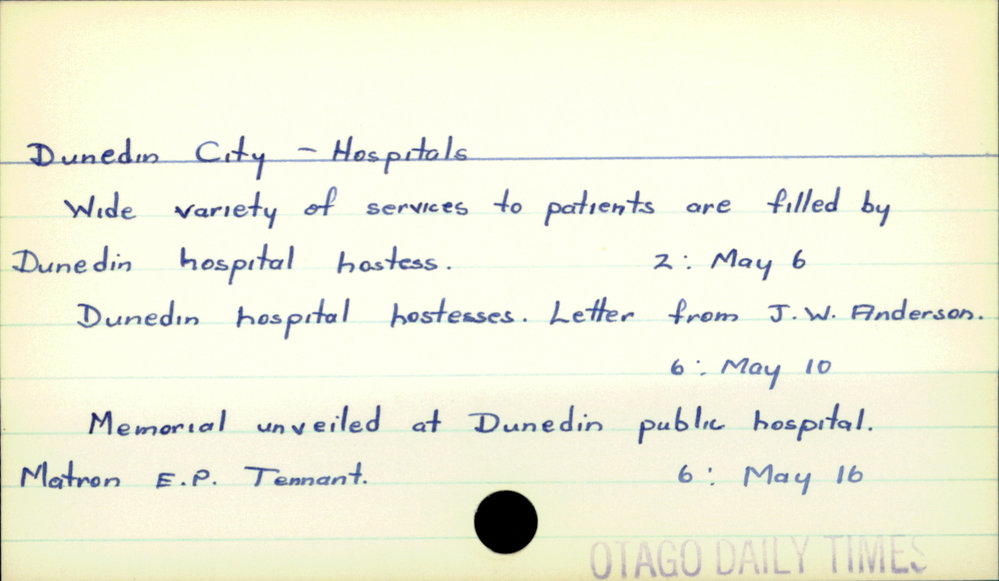 Dunedin City - Hospitals
Wide variety of services to patients are filled by
Dunedin hospital hostess. 2: May 6
Dunedin hospital hostesses. Letter from J.W. Anderson.
6: May 10
Memorial unveiled at Dunedin public hospital.
Matron E.P. Tennant. 6: May 16
OTAGO DAILY TIMES